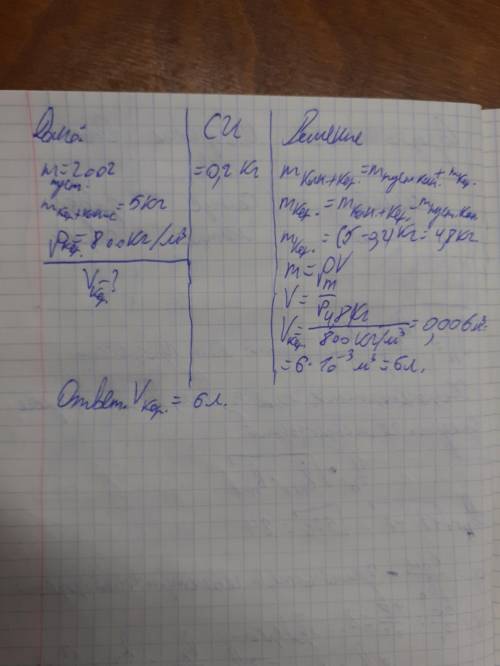 Дано:
m пуст. = 200г
m кер+кан = 5кг
ρкер = 800кг/м³
Vкер-?
СИ
=0,2 кг
Решение
mкан.+кер. = mпуст кан. + mкер.
mкер. = mкан.+кер. - mпуст.кан
mкер. = (5-0,2)кг = 4,8кг
m = ρV
V = m/ρ
Vкер. = 4,8кг/800кг/м³ = 0,006м³
= 6·10⁻³ м³ = 6л.
Ответ: Vкер. = 6л.